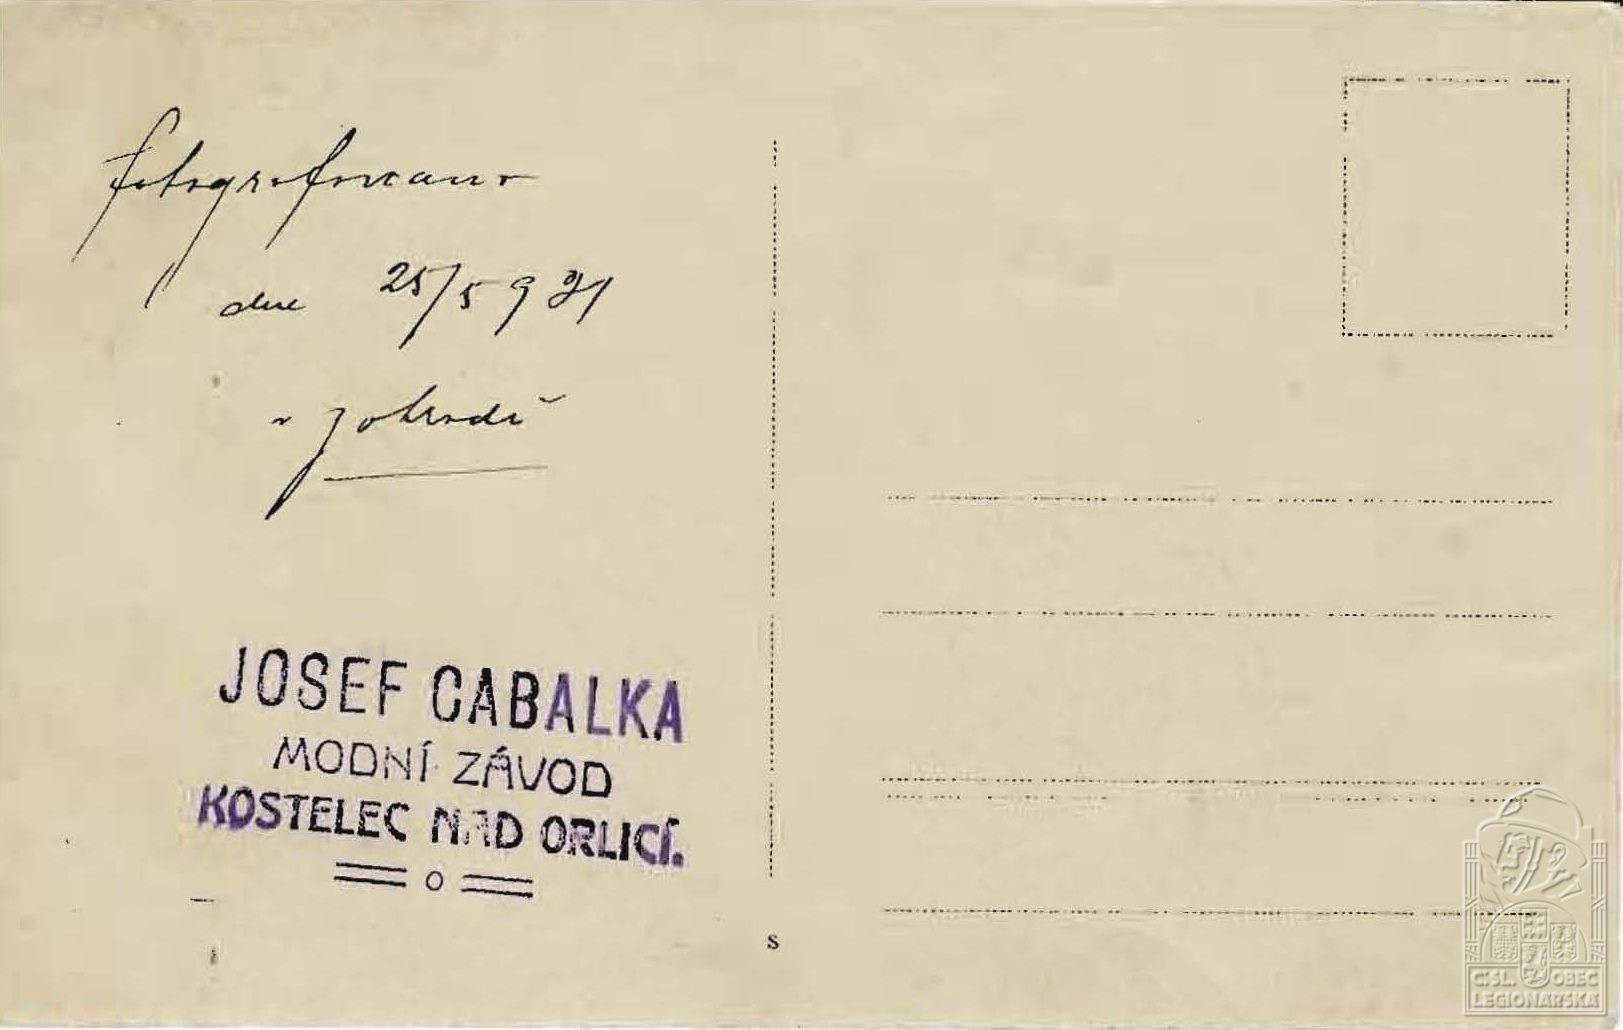 fotografováno
dne 25/5 921
v zahradě
JOSEF CABALKA
MODNÍ ZÁVOD
KOSTELEC NAD ORLICÍ.
S
ČSL. OBEC
LEGIONÁŘSKÁ